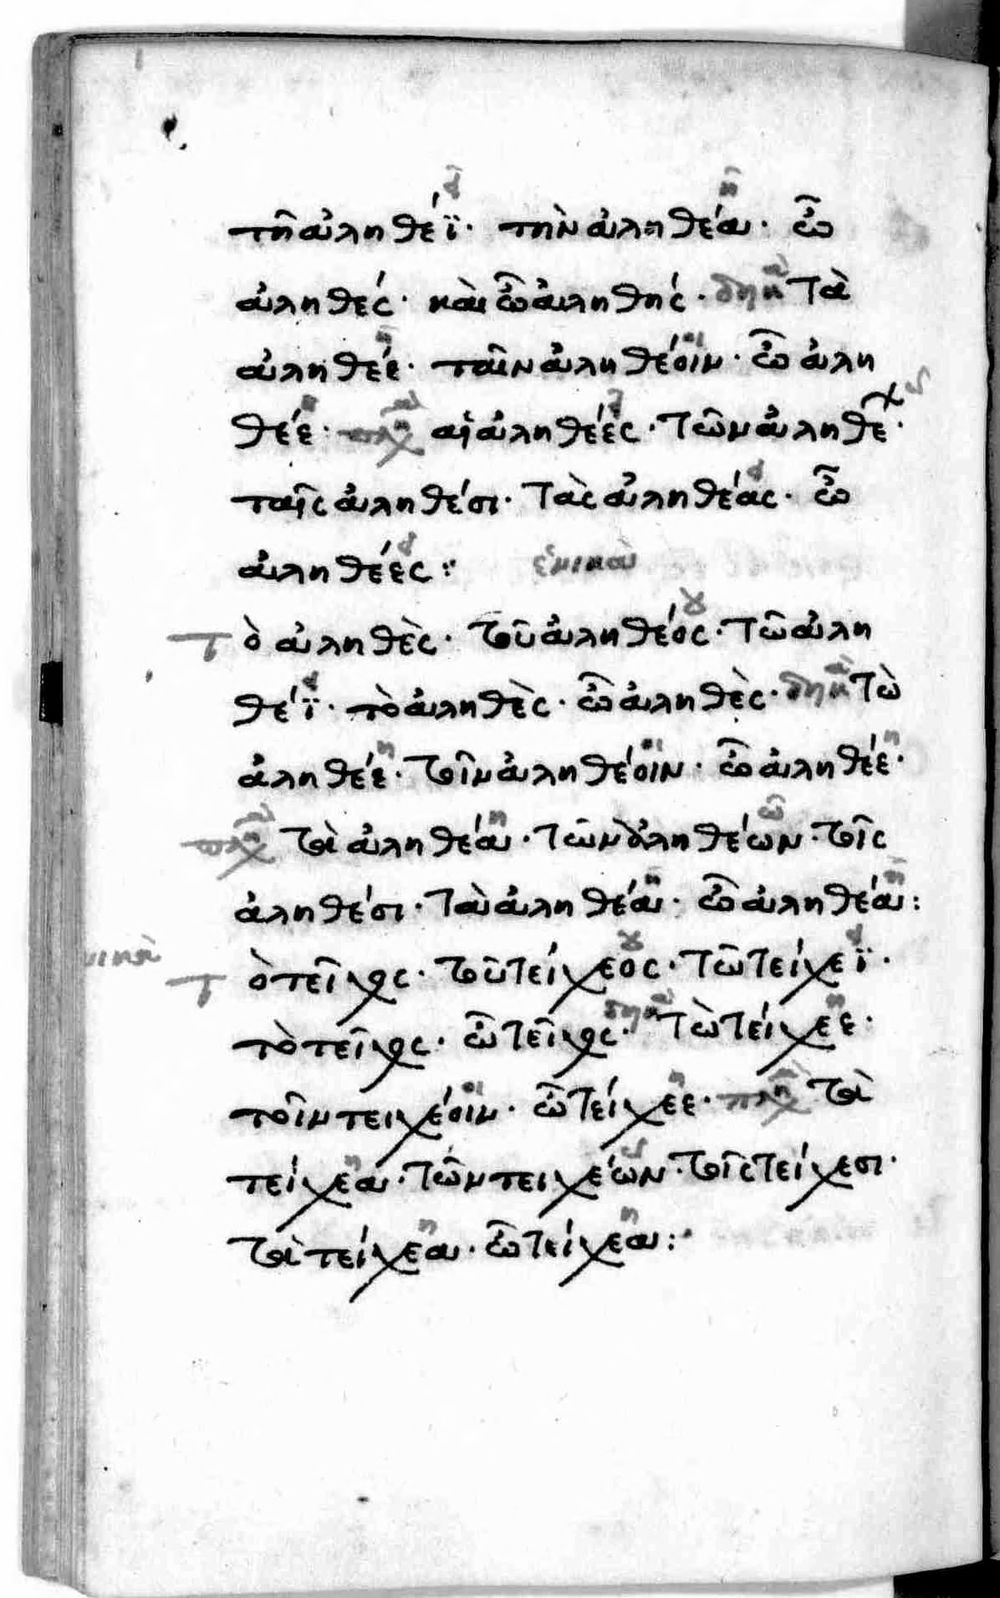 τῆ ἀληθέϊ· τὴν ἀληθέα· ὦ
ἀληθές· καὶ ὦ ἀληθής· δυϊκὰ Τὰ
ἀληθέε· ταῖν ἀληθέοιν· ὦ ἀλη
θέε· πλη αἱ ἀληθέες· τῶν ἀληθέ·
ταῖς ἀληθέσι· τὰς ἀληθέας· ὦ
ἀληθέες: ἑνικὰ
Τὸ ἀληθὲς· τοῦ ἀληθέος· τῶ ἀλη
θέϊ· τὸ ἀληθὲς· ὦ ἀληθὲς· δυϊκὰ Τὼ
ἀληθέε· τοῖν ἀληθέοιν· ὦ ἀληθέε·
πλη Τὰ ἀληθέα· τῶν ἀληθέων· τοῖς
ἀληθέσι· τὰ ἀληθέα· ὦ ἀληθέα:
νικὰ
Τὸ τεῖχος· τοῦ τείχεος· τῶ τείχεϊ·
τὸ τεῖχος· ὦ τεῖχος· δυϊκὰ Τὼ τείχεε·
τοῖν τειχέοιν· ὦ τείχεε· πλη Τὰ
τείχεα· τῶν τειχέων· τοῖς τείχεσι·
τὰ τείχεα· ὦ τείχεα: